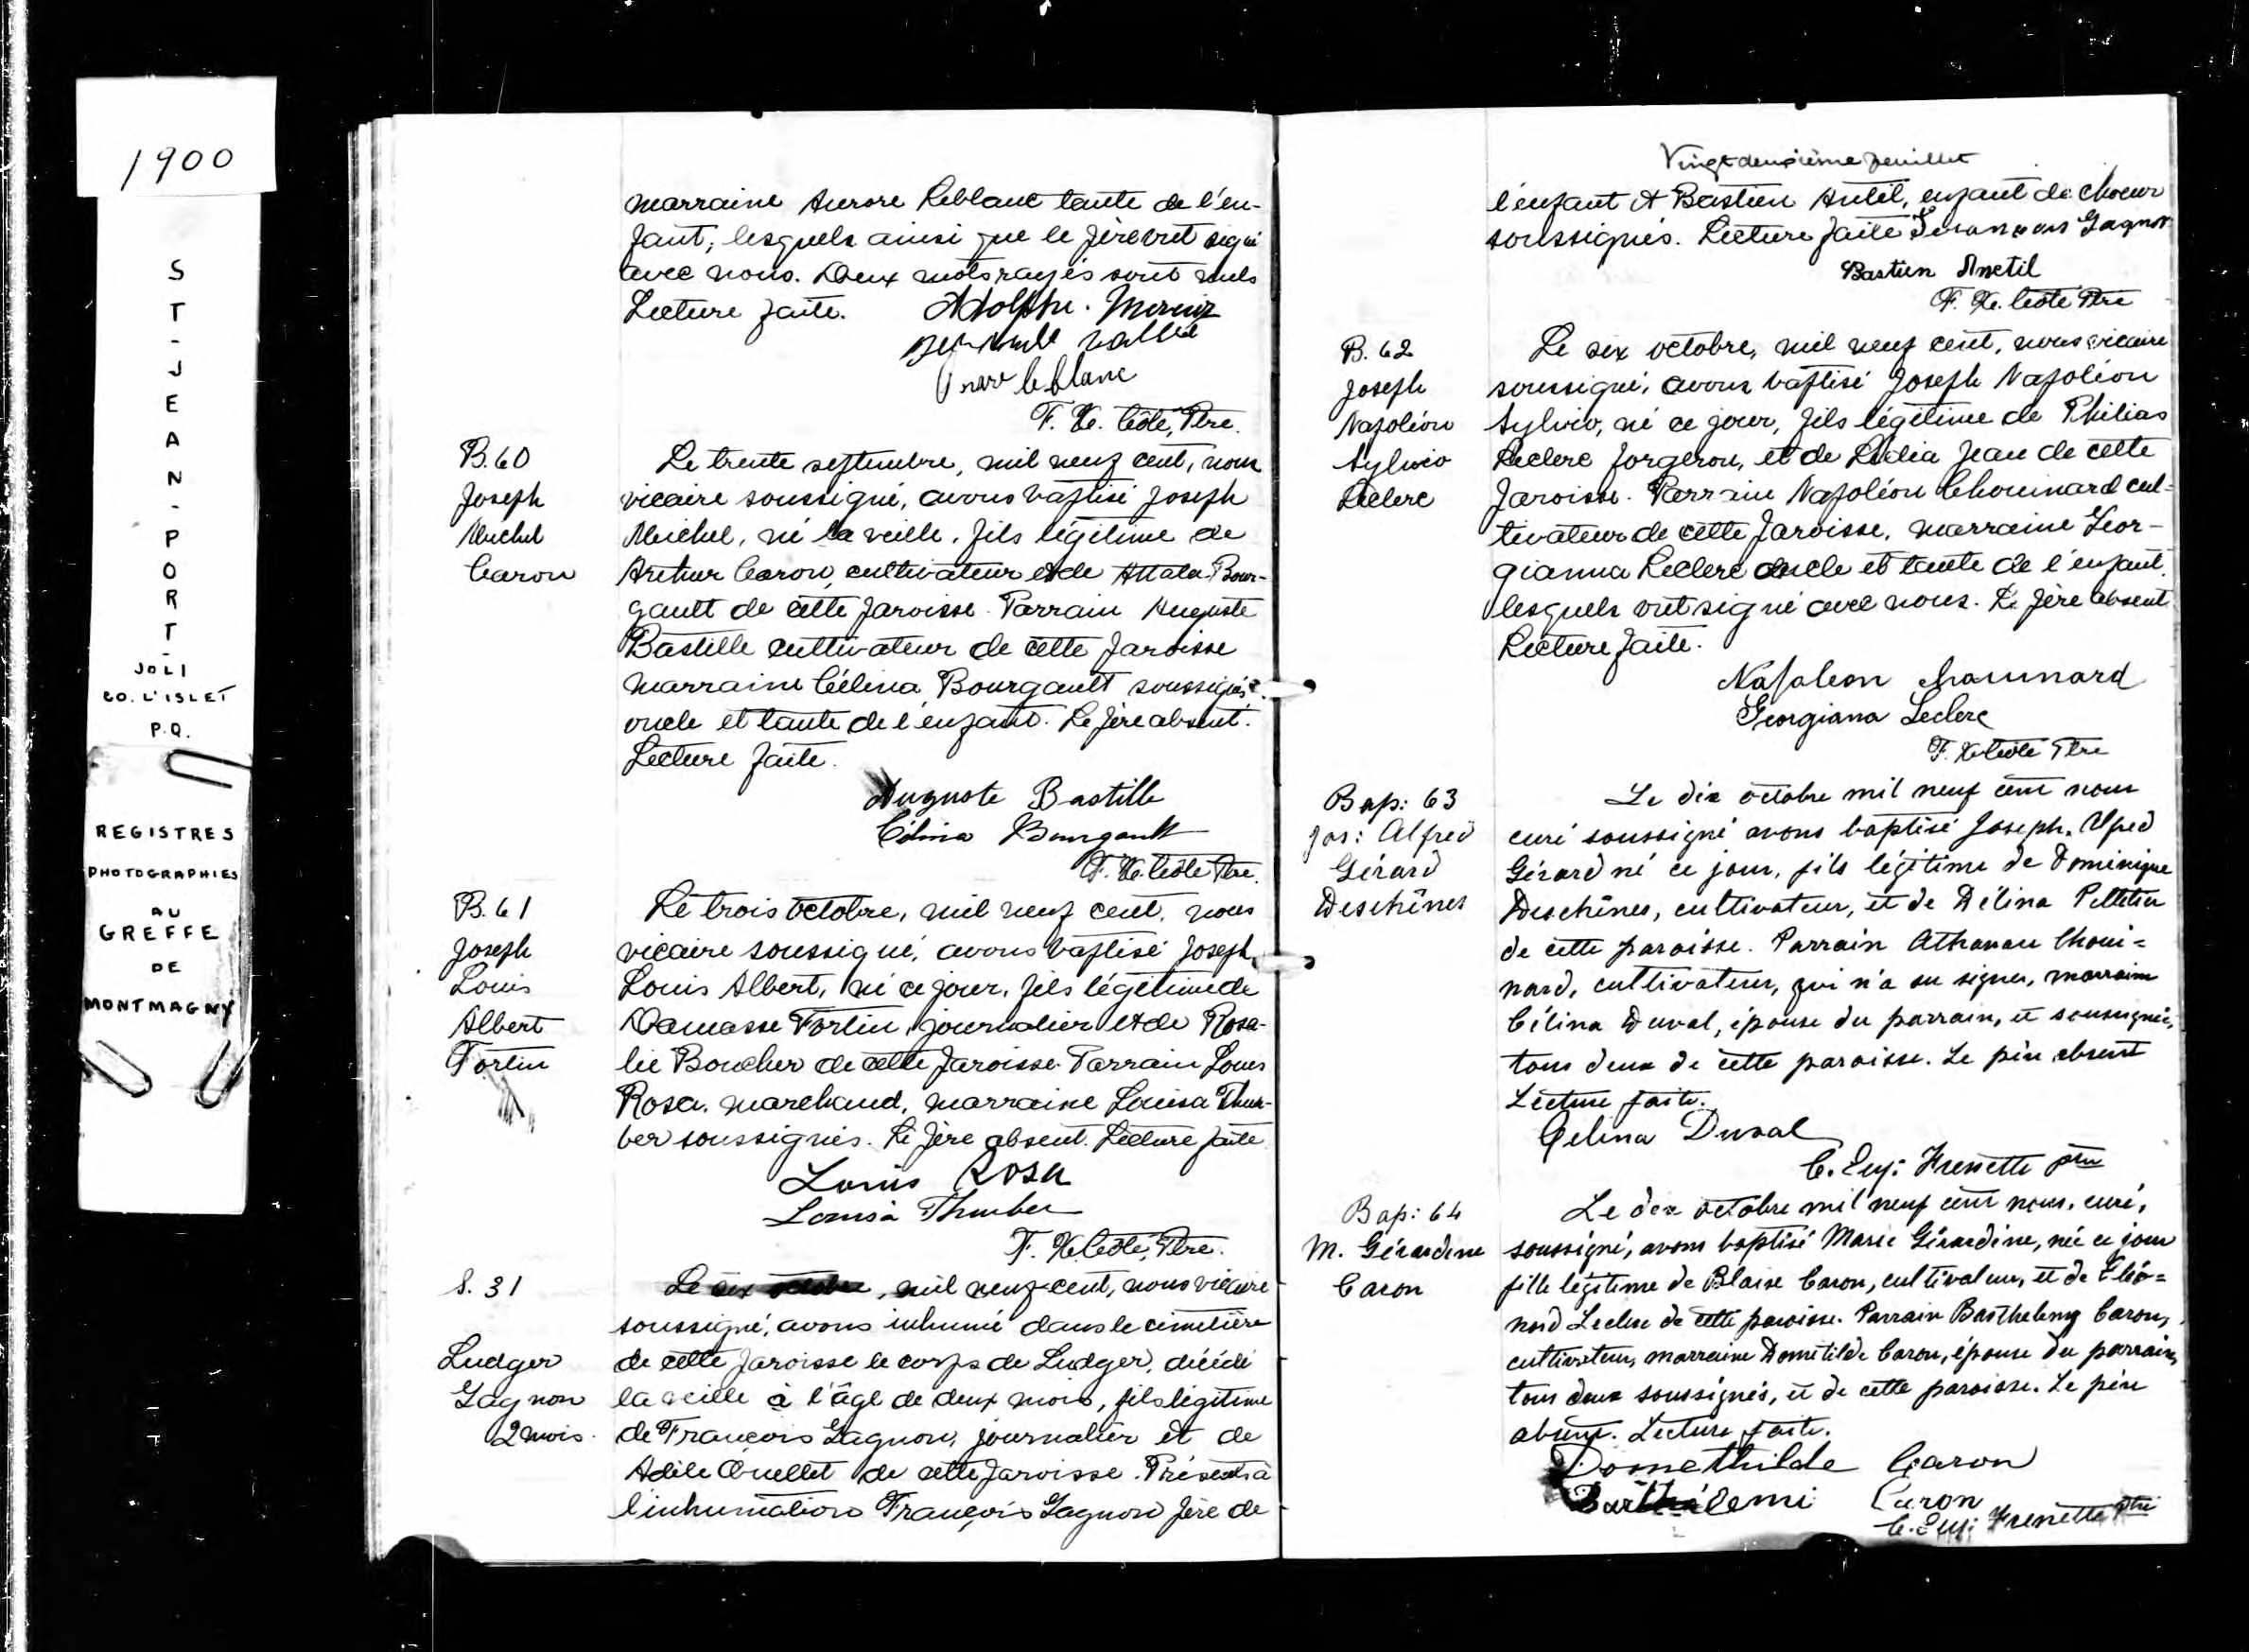 1900
ST-JEAN-PORT-
JOLI
CO. L'ISLET
P.Q.
REGISTRES
PHOTOGRAPHIES
AU
GREFFE
DE
MONTMAGNY
marraine Aurore Leblanc tante de l'en-
fant, lesquels ainsi que le père ont signé
avec nous. Deux mots rayés sont nuls
Lecture faite. Adolphe Mercier
leblanc
F. X. Côté, Ptre.
B. 60
Joseph
Michel
Caron
Le trente septembre, mil neuf cent, nous
vicaire soussigné, avons baptisé Joseph
Michel, né la veille, fils légitime de
Arthur Caron, cultivateur et de Attala Bour-
gault de cette paroisse. Parrain Auguste
Bastille cultivateur de cette paroisse
marraine Célina Bourgault soussignés
oncle et tante de l'enfant. Le père absent.
Lecture faite.
Auguste Bastille
Célina Bourgault
F. X. Côté Ptre.
B. 61
Joseph
Louis
Albert
Fortin
Le trois octobre, mil neuf cent, nous
vicaire soussigné, avons baptisé Joseph
Louis Albert, né ce jour, fils légitime de
Damasse Fortin, journalier et de Rosa-
lie Boucher de cette paroisse. Parrain Louis
Rosa, marchand, marraine Louisa Thur-
ber soussignés. Le père absent. Lecture faite
Louis Rosa
Louisa Thurber
F. X. Côté, Ptre.
S. 31
Ludger
Gagnon
2 mois.
Le six octobre, mil neuf cent, nous vicaire
soussigné, avons inhumé dans le cimetière
de cette paroisse le corps de Ludger, décédé
la veille à l'âge de deux mois, fils légitime
de François Gagnon, journalier et de
Adèle Ouellet de cette paroisse. Présents à
l'inhumation François Gagnon père de
Vingt deuxième feuillet
l'enfant et Bastien Anctil, enfant de choeur
soussignés. Lecture faite Gagnon
Bastien Anctil
F. X. Côté Ptre
B. 62
Joseph
Napoléon
Sylvio
Leclerc
Le six octobre, mil neuf cent, nous vicaire
soussigné, avons baptisé Joseph Napoléon
Sylvio, né ce jour, fils légitime de Philias
Leclerc forgeron, et de Lédia Jean de cette
paroisse. Parrain Napoléon Chouinard cul-
tivateur de cette paroisse, marraine Geor-
gianna Leclerc oncle et tante de l'enfant,
lesquels ont signé avec nous. Le père absent
Lecture faite.
Napoleon Chouinard
Georgiana Leclerc
F. X. Côté Ptre
Bap: 63
Jos: Alfred
Gérard
Deschênes
Le dix octobre mil neuf cent nous
curé soussigné avons baptisé Joseph, Alfred
Gérard né ce jour, fils légitime de Dominique
Deschênes, cultivateur, et de Délina Pelletier
de cette paroisse. Parrain Athanase Choui=
nard, cultivateur, qui n'a su signer, marraine
Célina Duval, épouse du parrain, et soussignée,
tous deux de cette paroisse. Le père absent
Lecture faite.
Celina Duval
C. Eug: Frenette ptre
Bap: 64
M. Gérardine
Caron
Le dix octobre mil neuf cent nous, curé,
soussigné, avons baptisé Marie Gérardine, née ce jour
fille légitime de Blaise Caron, cultivateur, et de Eléo=
nord Leclerc de cette paroisse. Parrain Barthelemy Caron,
cultivateur, marraine Domitilde Caron, épouse du parrain,
tous deux soussignés, et de cette paroisse. Le père
absent. Lecture faite.
Domethilde Caron
Barthélemi Caron
C. Eug: Frenette ptre